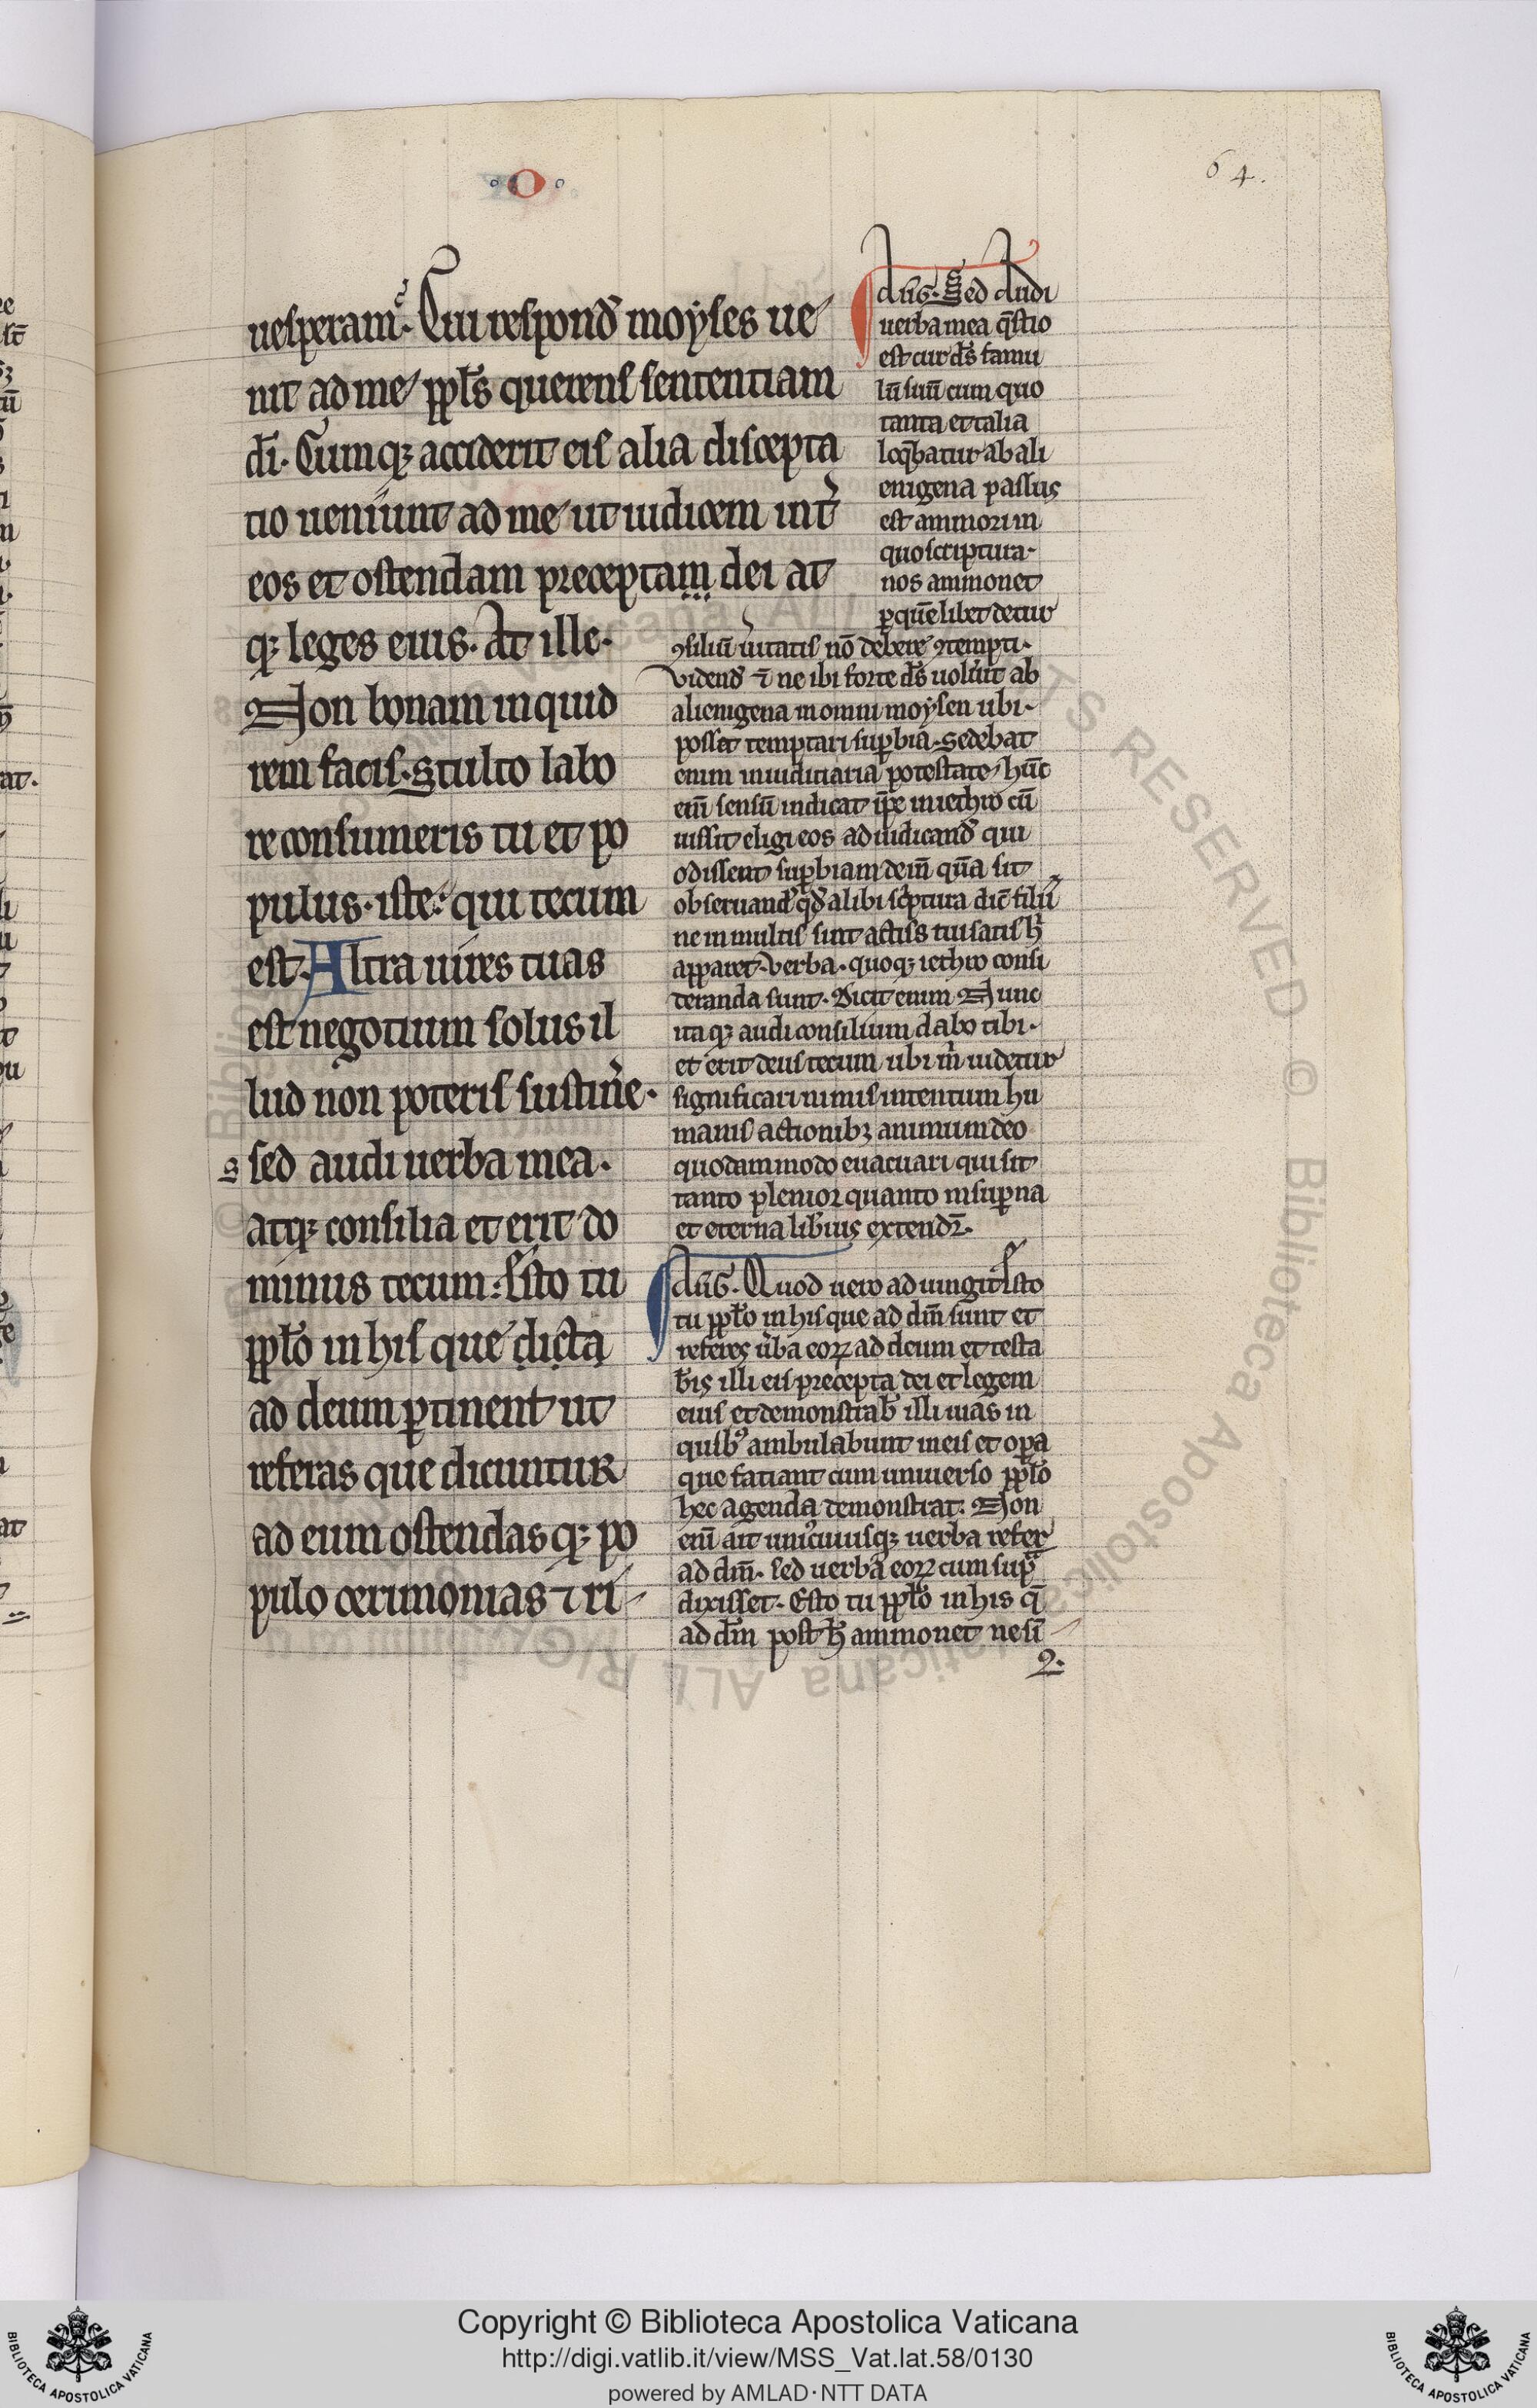 ·O·
64.
uesperam. Cui respond̄ moyses ue
nit ad me ppl̄s querens sententiam
dī. Cumqꝫ acciderit eis alia discepta
tio ueniunt ad me ut iudicem int̄
eos et ostendam preceptam dei at
qꝫ leges eius. At ille.
Non bonam inquid
rem facis. Stulto labo
re consumeris tu et po
pulus. iste. qui tecum
est. Altra uires tuas
est negotium solus il
lud non poteris sustin̄e.
s sed audi uerba mea.
atqꝫ consilia et erit do
minus tecum. Esto tu
ppl̄o in his que dicta
ad deum ꝑtinent ut
referas que dicuntur
ad eum ostendas qꝫ po
pulo cerimonias ⁊ ri
Aūg. Sed Audi
uerba mea q̄stio
est cur d̄s famu
lū suū cum quo
tanta et talia
loq̄batur ab ali
enigena passus
est ammoneri in
quo scriptura.
nos ammonet
ꝑ quēlibet detur
ꝯsiliū ūitatis nō debere ꝯtempti.
Vidend̄ ē ne ibi forte d̄s uolūit ab
alienigena moysen ubi.
posset temptari suꝑbia. sedebat
enim in iudiciaria potestate hūc
enī sensū indicat ip̄e iniethro cū
iussit eligi eos ad iudicand̄ qui
odissent suꝑbiam
obseruand̄ qd̄ alibi sc̄ptura dic̄ filii
ne in multis sint actus tui satis h̄
apparet. Verba. quoqꝫ iethro consi
deranda sunt. Dicit enim Nunc
itaqꝫ audi consilium dabo tibi.
et erit deus tecum ubi m̄ uidetur
significari nimis intentum hu
manis actionibꝫ animum deo
quodammodo euacuari qui fit
tanto plenior quanto in suꝑna
et eterna libīus extendr̄.
Aūg. Quod uero adiungit Esto
tu ppl̄o in his que ad dm̄ sunt et
referes ūba eoꝝ ad deum et testa
b̄is illi eis precepta dei et legem
eius et demonstrab̄ illi uias in
quibꝰ ambulabunt in eis et oꝑa
que fatiant cum uniuerso ppl̄o
hec agenda demonstrat. Non
enī ait uniꝰcuiusqꝫ uerba refer
ad dm̄. sed uerba eoꝝ cum sup̄
dixisset. Esto tu ppl̄o in his q̄
ad dm̄ post h̄ ammonet ne sī
2.
© Biblioteca Apostolica Vaticana ALL RIGHTS RESERVED
Copyright © Biblioteca Apostolica Vaticana
http://digi.vatlib.it/view/MSS_Vat.lat.58/0130
powered by AMLAD·NTT DATA
BIBLIOTECA APOSTOLICA VATICANA
BIBLIOTECA APOSTOLICA VATICANA